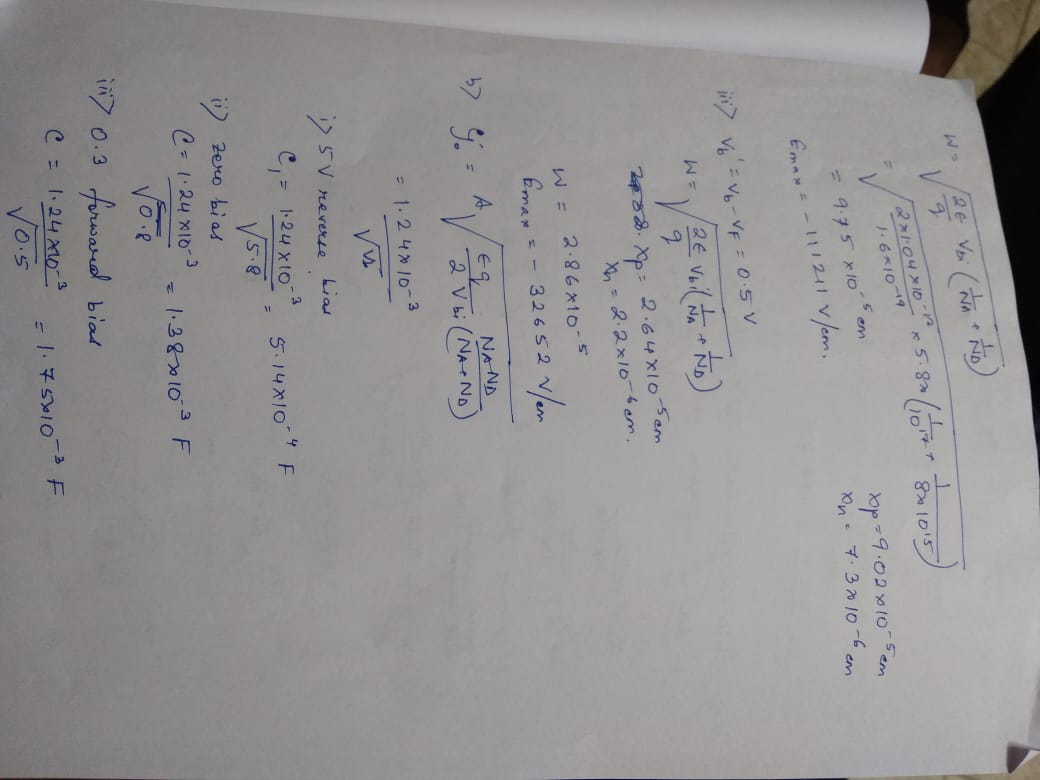 W = √(2ε/q Vbi (1/NA + 1/ND))
= √(2×1.04×10^-12/1.6×10^-19 × 5.8 × (1/10^17 + 1/8×10^15))
= 9.75 × 10^-5 cm
xp = 9.02×10^-5 cm
xn = 7.3×10^-6 cm
Emax = - 111241 V/cm.
iii) Vb' = Vb - VF = 0.5 V
W = √(2ε/q Vbi (1/NA + 1/ND))
xp = 2.64×10^-5 cm
xn = 2.2×10^-6 cm.
W = 2.86×10^-5
Emax = - 32652 V/cm
b) Cj0 = A √(εq/2Vbi NA·ND/(NA+ND))
= 1.24×10^-3/√Vb
i) 5V reverse bias
C1 = 1.24×10^-3/√5.8 = 5.14×10^-4 F
ii) zero bias
C = 1.24×10^-3/√0.8 = 1.38×10^-3 F
iii) 0.3 forward bias
C = 1.24×10^-3/√0.5 = 1.75×10^-3 F